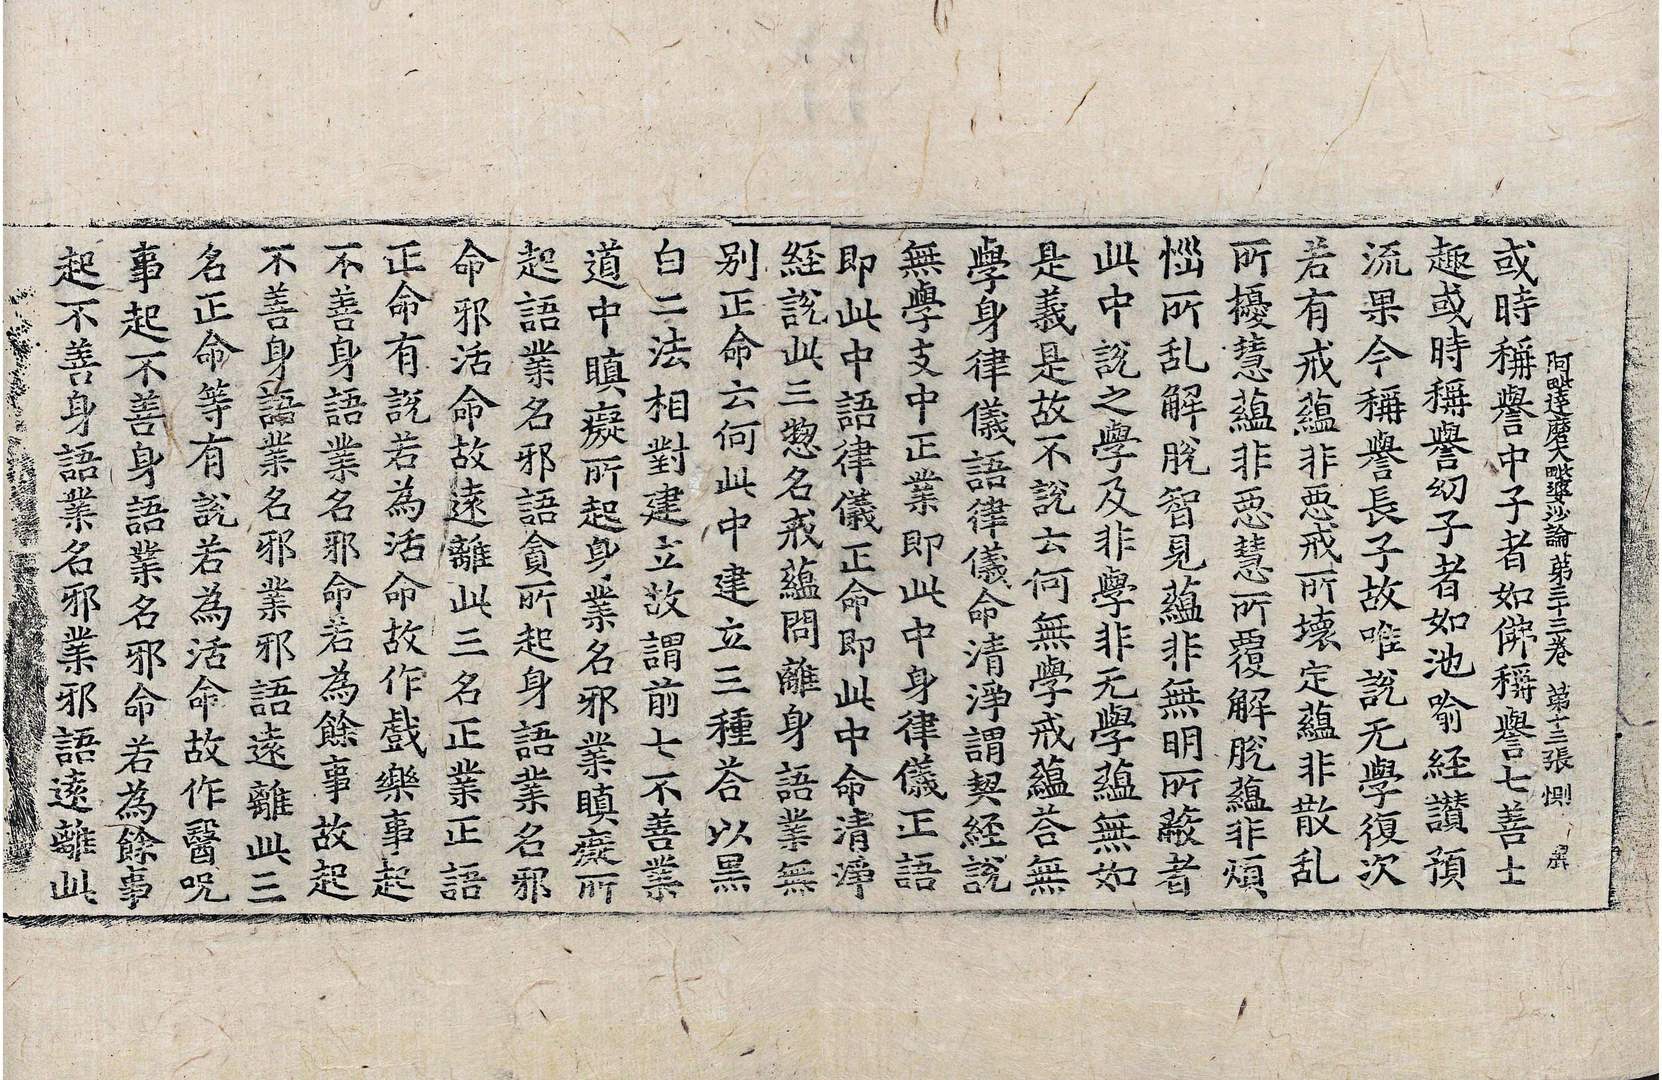 阿毗達磨大毗婆沙論第三十三卷 第十三張 惻
或時稱譽中子者如佛稱譽七善士
趣或時稱譽幼子者如池喻經讃預
流果今稱譽長子故唯說无學復次
若有戒蘊非惡戒所壞定蘊非散乱
所擾慧蘊非惡慧所覆解脫蘊非煩
惱所乱解脫智見蘊非無明所蔽者
此中說之學及非學非无學蘊無如
是義是故不說云何無學戒蘊荅無
學身律儀語律儀命清淨謂契經說
無學支中正業即此中身律儀正語
即此中語律儀正命即此中命清淨
經說此三惣名戒蘊問離身語業無
別正命云何此中建立三種荅以黑
白二法相對建立故謂前七不善業
道中瞋癡所起身業名邪業瞋癡所
起語業名邪語貪所起身語業名邪
命邪活命故遠離此三名正業正語
正命有說若為活命故作戲樂事起
不善身語業名邪命若為餘事故起
不善身語業名邪業邪語遠離此三
名正命等有說若為活命故作醫呪
事起不善身語業名邪命若為餘事
起不善身語業名邪業邪語遠離此